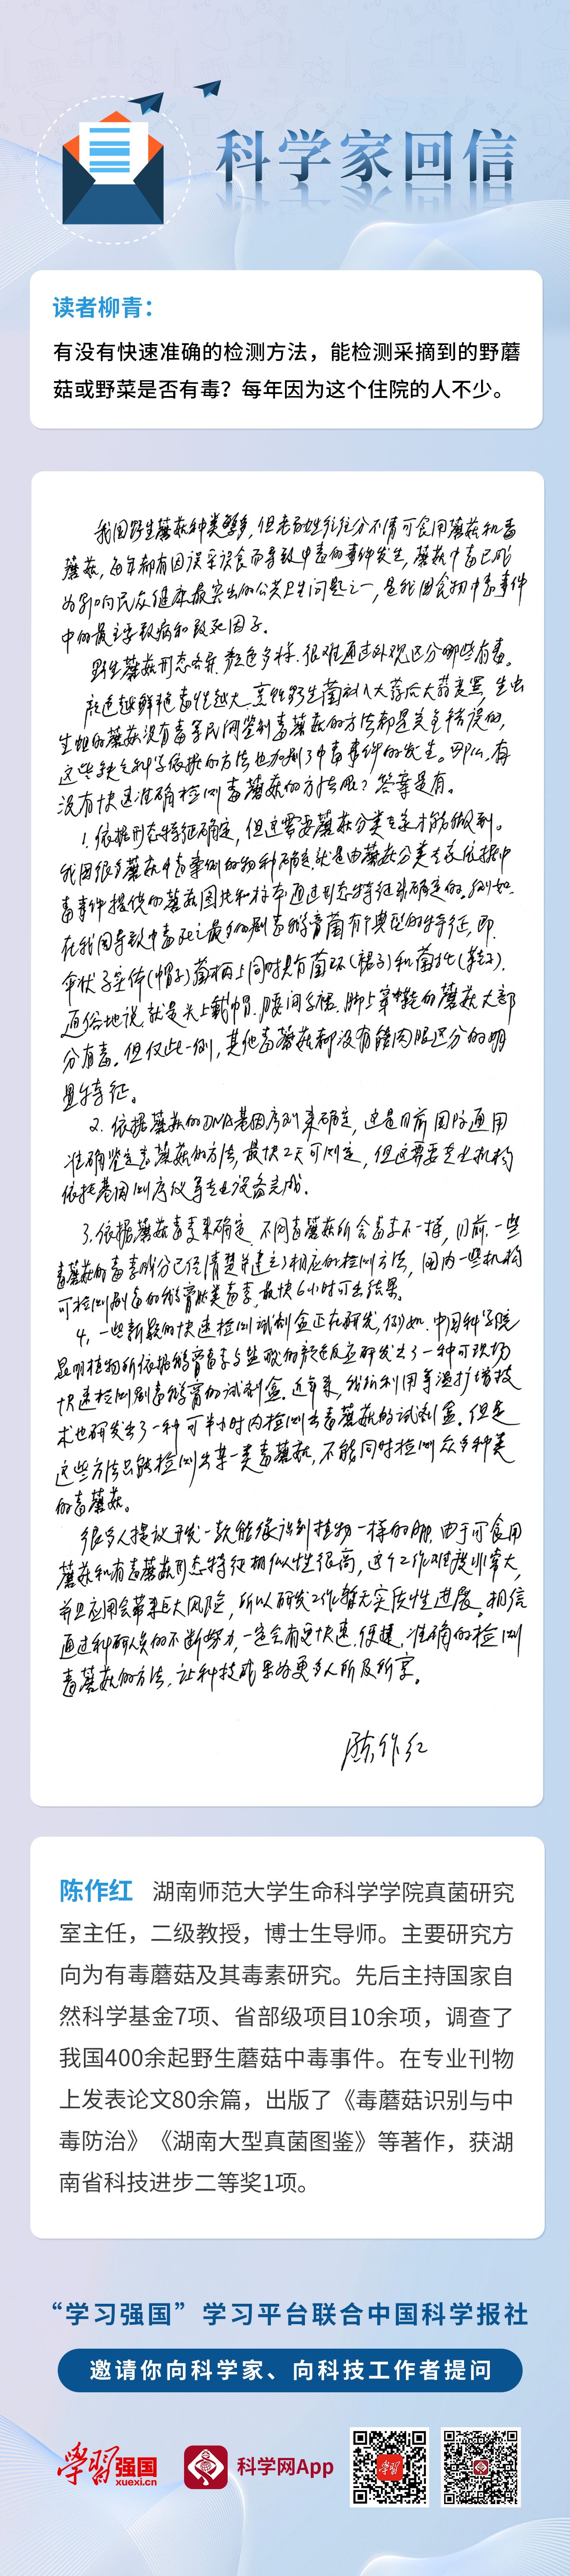 科学家回信
读者柳青：
有没有快速准确的检测方法，能检测采摘到的野蘑
菇或野菜是否有毒？每年因为这个住院的人不少。
我国野生蘑菇种类繁多，但老百姓往往分不清可食用蘑菇和毒
蘑菇，每年都有因误采误食而导致中毒的事件发生，蘑菇中毒已成
为影响民众健康最突出的公共卫生问题之一，是我国食物中毒事件
中的最主要致病和致死因子。
野生蘑菇形态各异、颜色多样，很难通过外观区分哪些有毒。
颜色越鲜艳毒性越大、烹饪野生菌加入大蒜后大蒜变黑，生虫
生蛆的蘑菇没有毒等民间鉴别毒蘑菇的方法都是完全错误的，
这些缺乏科学依据的方法也加剧了中毒事件的发生。那么，有
没有快速准确检测毒蘑菇的方法呢？答案是有。
1. 依据形态特征确定，但这需要蘑菇分类专家才能做到。
我国很多蘑菇中毒案例的物种确定，就是由蘑菇分类专家依据中
毒事件提供的蘑菇图片和标本通过形态特征来确定的。例如，
在我国导致中毒死亡最多的剧毒鹅膏菌有个典型的特征，即
伞状子实体(帽子)菌柄上同时具有菌环(裙子)和菌托(鞋子)，
通俗地说，就是头上戴帽、腰间系裙、脚上穿鞋的蘑菇大部
分有毒。但仅此一例，其他毒蘑菇都没有能肉眼区分的明
显特征。
2. 依据蘑菇的DNA基因序列来确定，这是目前国际通用
准确鉴定毒蘑菇的方法，最快2天可测定，但这需要专业机构
依托基因测序仪等专业设备完成。
3. 依据蘑菇毒素来确定，不同毒蘑菇所含毒素不一样，目前，一些
毒蘑菇的毒素成分已经清楚并建立了相应的检测方法，国内一些机构
可检测剧毒的鹅膏肽类毒素，最快6小时可出结果。
4. 一些新颖的快速检测试剂盒正在研发，例如，中国科学院
昆明植物所依据鹅膏毒素与盐酸的颜色反应研发出了一种可现场
快速检测剧毒鹅膏的试剂盒。近年来，我们利用等温扩增技
术也研发出了一种可半小时内检测出毒蘑菇的试剂盒。但是
这些方法只能检测出某一类毒蘑菇，不能同时检测众多种类
的毒蘑菇。
很多人提议开发一款能像识别植物一样的APP，由于可食用
蘑菇和有毒蘑菇形态特征相似性很高，这个工作难度非常大，
并且应用会带来巨大风险，所以研发工作暂无实质性进展。相信
通过科研人员的不断努力，一定会有更快速、便捷、准确的检测
毒蘑菇的方法，让科技成果为更多人所及所享。
陈作红
陈作红 湖南师范大学生命科学学院真菌研究
室主任，二级教授，博士生导师。主要研究方
向为有毒蘑菇及其毒素研究。先后主持国家自
然科学基金7项、省部级项目10余项，调查了
我国400余起野生蘑菇中毒事件。在专业刊物
上发表论文80余篇，出版了《毒蘑菇识别与中
毒防治》《湖南大型真菌图鉴》等著作，获湖
南省科技进步二等奖1项。
“学习强国”学习平台联合中国科学报社
邀请你向科学家、向科技工作者提问
学习强国
xuexi.cn
科学网App